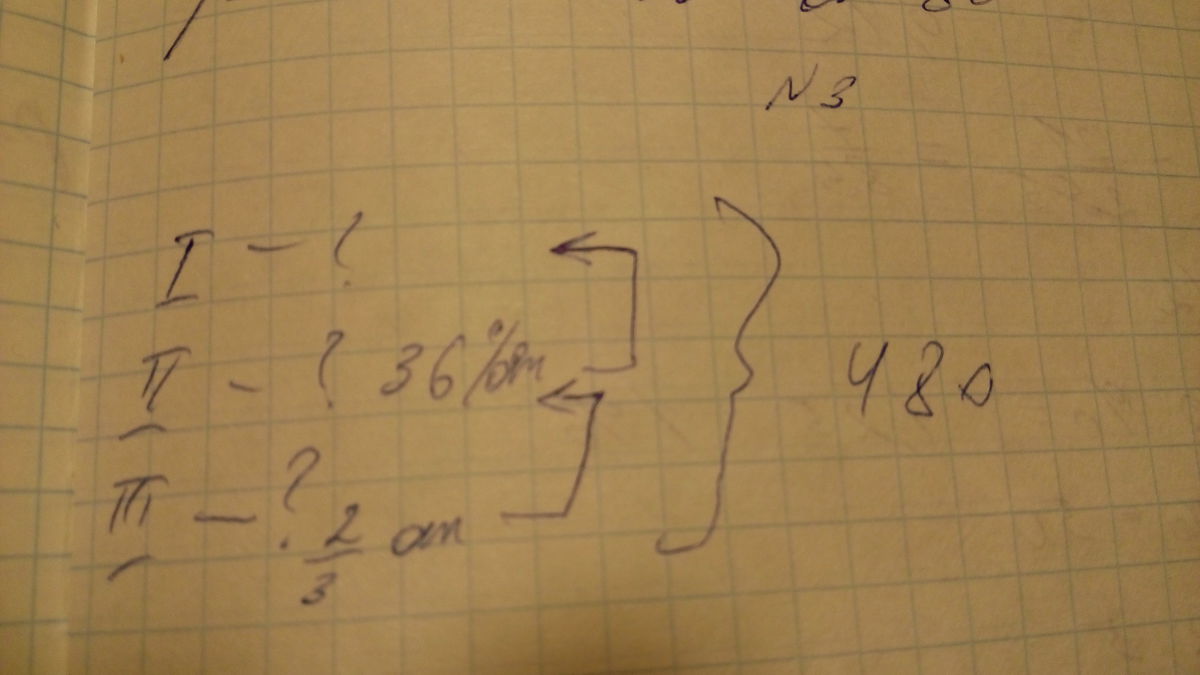 N 3
I - ?
II - ? 36% от
III - ? 2/3 от
480